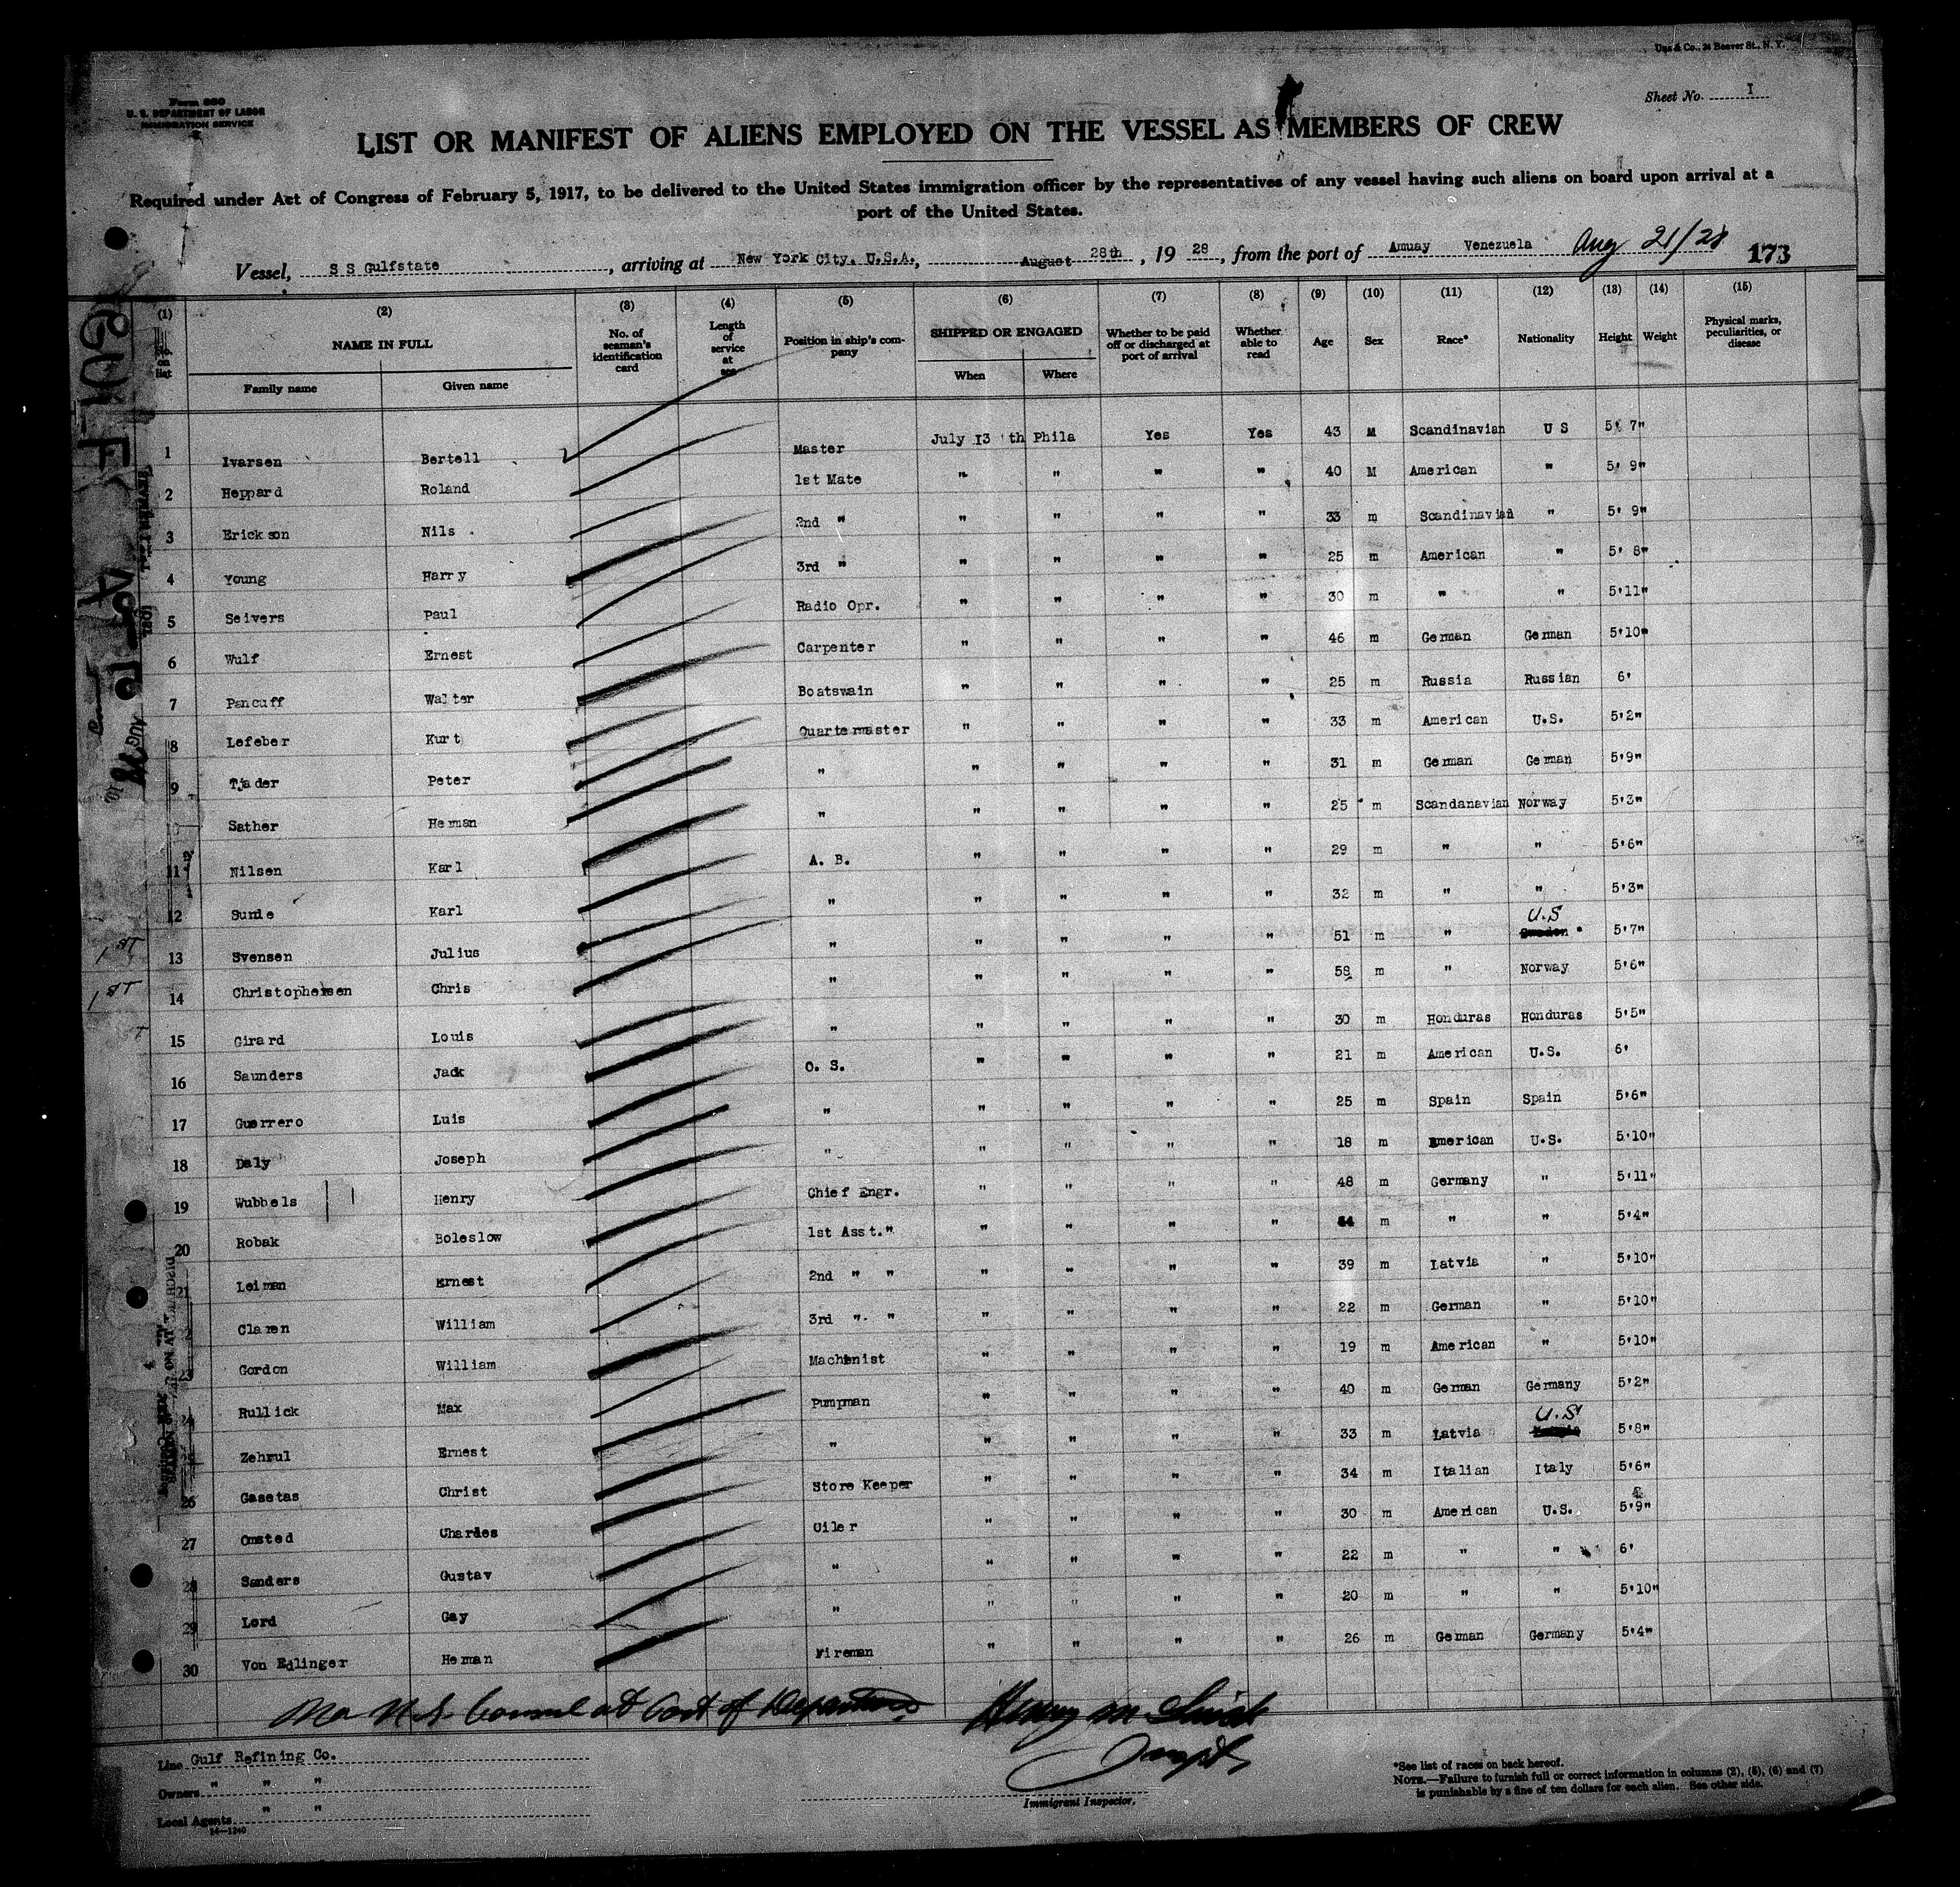 Uns & Co., 24 Beaver St., N. Y.
Form 680
U. S. DEPARTMENT OF LABOR
IMMIGRATION SERVICE
Sheet No. I
LIST OR MANIFEST OF ALIENS EMPLOYED ON THE VESSEL AS MEMBERS OF CREW
Required under Act of Congress of February 5, 1917, to be delivered to the United States immigration officer by the representatives of any vessel having such aliens on board upon arrival at a
port of the United States.
Vessel, S S Gulfstate, arriving at New York City. U.S.A., August 28th, 19 28, from the port of Amuay Venezuela Aug 21/28 173
(1) (2) (3) (4) (5) (6) (7) (8) (9) (10) (11) (12) (13) (14) (15)
No. on list NAME IN FULL Family name Given name No. of seaman's identification card Length of service at sea Position in ship's company SHIPPED OR ENGAGED When Where Whether to be paid off or discharged at port of arrival Whether able to read Age Sex Race* Nationality Height Weight Physical marks, peculiarities, or disease
1 Ivarsen Bertell Master July 13 th Phila Yes Yes 43 M Scandinavian U S 5' 7"
2 Heppard Roland 1st Mate " " " " 40 M American " 5' 9"
3 Erickson Nils 2nd " " " " " 33 m Scandinavian " 5' 9"
4 Young Harry 3rd " " " " " 25 m American " 5' 8"
5 Seivers Paul Radio Opr. " " " " 30 m " " 5'11"
6 Wulf Ernest Carpenter " " " " 46 m German German 5'10"
7 Pancuff Walter Boatswain " " " " 25 m Russia Russian 6'
8 Lefeber Kurt Quartermaster " " " " 33 m American U.S. 5'2"
9 Tjader Peter " " " " " 31 m German German 5'9"
10 Sather Herman " " " " " 25 m Scandanavian Norway 5'3"
11 Nilsen Karl A. B. " " " " 29 m " " 5'6"
12 Sunde Karl " " " " " 32 m " " 5'3"
1ST 13 Svensen Julius " " " " " 51 m " Sweden U.S 5'7"
1ST 14 Christophersen Chris " " " " " 58 m " Norway 5'6"
15 Girard Louis " " " " " 30 m Honduras Honduras 5'5"
16 Saunders Jack O. S. " " " " 21 m American U.S. 6'
17 Guerrero Luis " " " " " 25 m Spain Spain 5'6"
18 Daly Joseph " " " " " 18 m American U.S. 5'10"
19 Wubbels Henry Chief Engr. " " " " 48 m Germany " 5'11"
20 Robak Boleslow 1st Asst." " " " " m " " 5'4"
21 Leiman Ernest 2nd " " " " " " 39 m Latvia " 5'10"
Claren William 3rd " " " " " " 22 m German " 5'10"
23 Gordon William Machinist " " " " 19 m American " 5'10"
24 Rullick Max Pumpman " " " " 40 m German Germany 5'2"
Zehrul Ernest " " " " " 33 m Latvia U.S 5'8"
26 Gasetas Christ Store Keeper " " " " 34 m Italian Italy 5'6"
27 Omsted Charles Oiler " " " " 30 m American U.S. 5'9"
28 Sanders Gustav " " " " " 22 m " " 6'
29 Lord Gay " " " " " 20 m " " 5'10"
30 Von Edlinger Herman Fireman " " " " 26 m German Germany 5'4"
No U.S. Consul at Port of Departure
Line Gulf Refining Co.
Owners " " "
Local Agents " "
14—1240
Immigrant Inspector.
*See list of races on back hereof.
NOTE.—Failure to furnish full or correct information in columns (2), (5), (6) and (7)
is punishable by a fine of ten dollars for each alien. See other side.